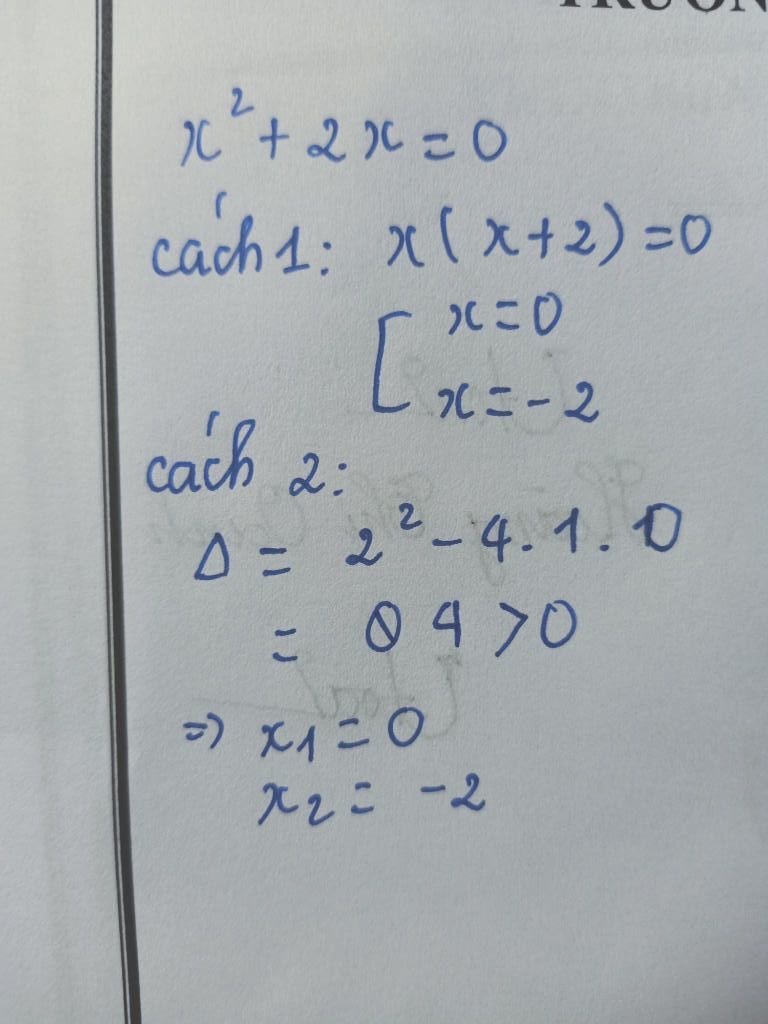 x² + 2x = 0
cách 1: x(x+2) = 0
[ x = 0
x = -2
cách 2:
Δ = 2² - 4.1.0
= 4 > 0
=> x₁ = 0
x₂ = -2